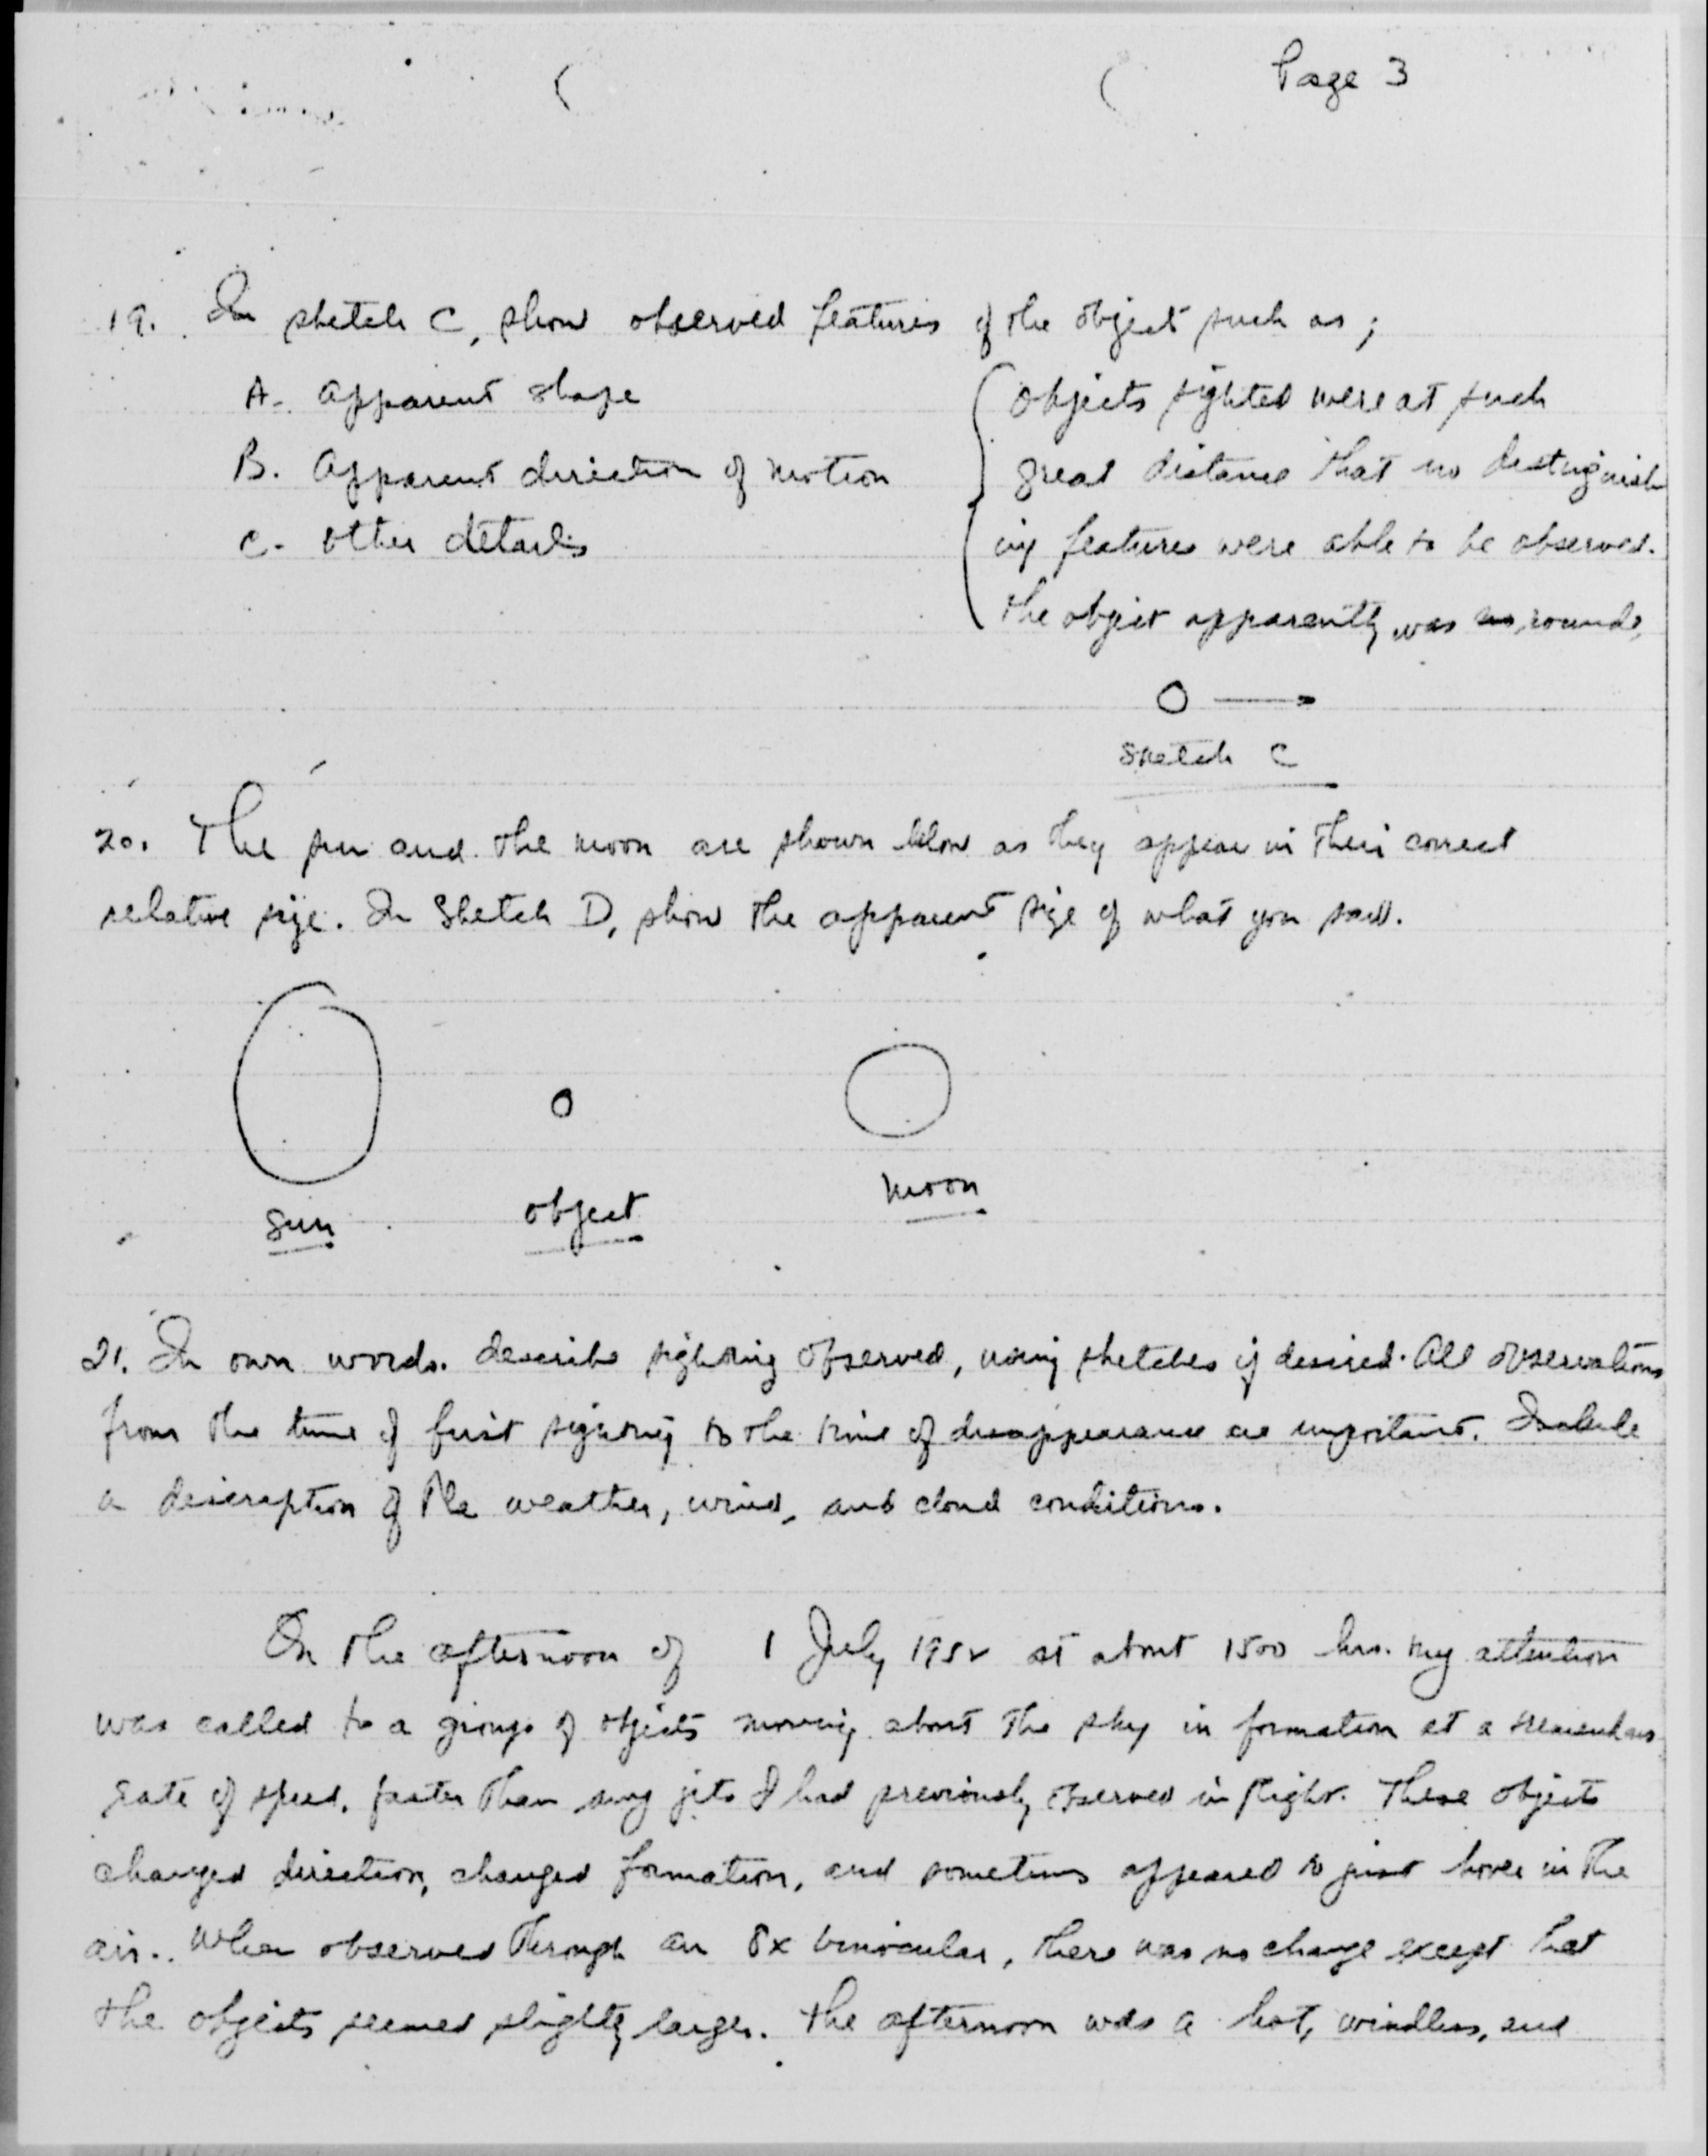 Page 3
19. In sketch C, show observed features of the object such as;
A- Apparent shape
B. Apparent direction of motion
C- Other details
Objects sighted were at such
great distance that no distinguish
ing features were able to be observed.
The object apparently was round.
Sketch C
20. The sun and the moon are shown below as they appear in their correct
relative size. In Sketch D, show the apparent size of what you saw.
Sun
object
moon
21. In own words. describe sighting observed, using sketches if desired. All observations
from the time of first sighting to the time of disappearance are important. Include
a description of the weather, wind, and cloud conditions.
On the afternoon of 1 July 1952 at about 1500 hrs. my attention
was called to a group of objects moving about the sky in formation at a tremendous
rate of speed, faster than any jets I had previously observed in flight. These objects
changed direction, changed formation, and sometimes appeared to just hover in the
air. When observed through an 8x binocular, there was no change except that
the objects seemed slightly larger. The afternoon was a hot, windless, and